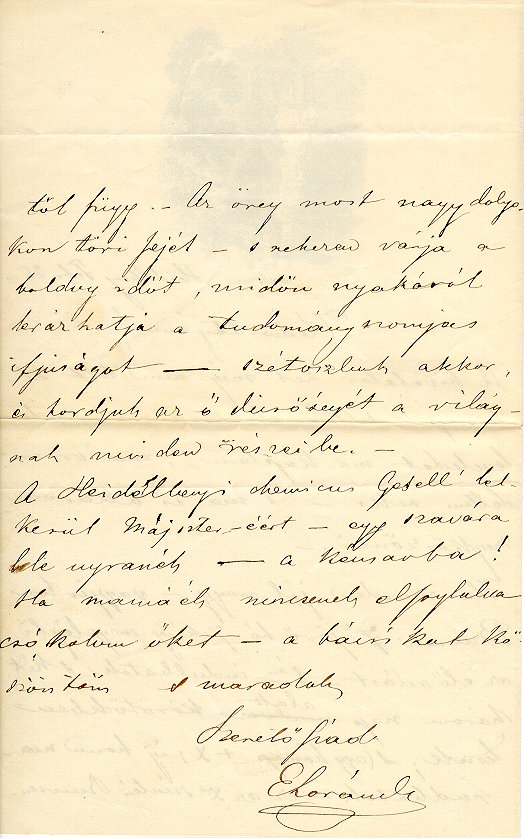 től függ. – Az öreg most nagy dolgo-
kon töri fejét – s nekem várja a
boldog időt, midőn nyakáról
lerázhatja a tudományszomjas
ifjuságot — szétoszlunk akkor,
és hordjuk az ő dicsőségét a világ-
nak minden részeibe. –
A Heidelbergi chemicus Gesell lel-
kesül Májszter-éért – egy szavára
bele ugranék — a kénsavba!
Ha mamáék nincsenek elfoglalva
csókolom őket — a bácsikat kö-
szöntöm s maradok
Szerető fiad
ELoránd